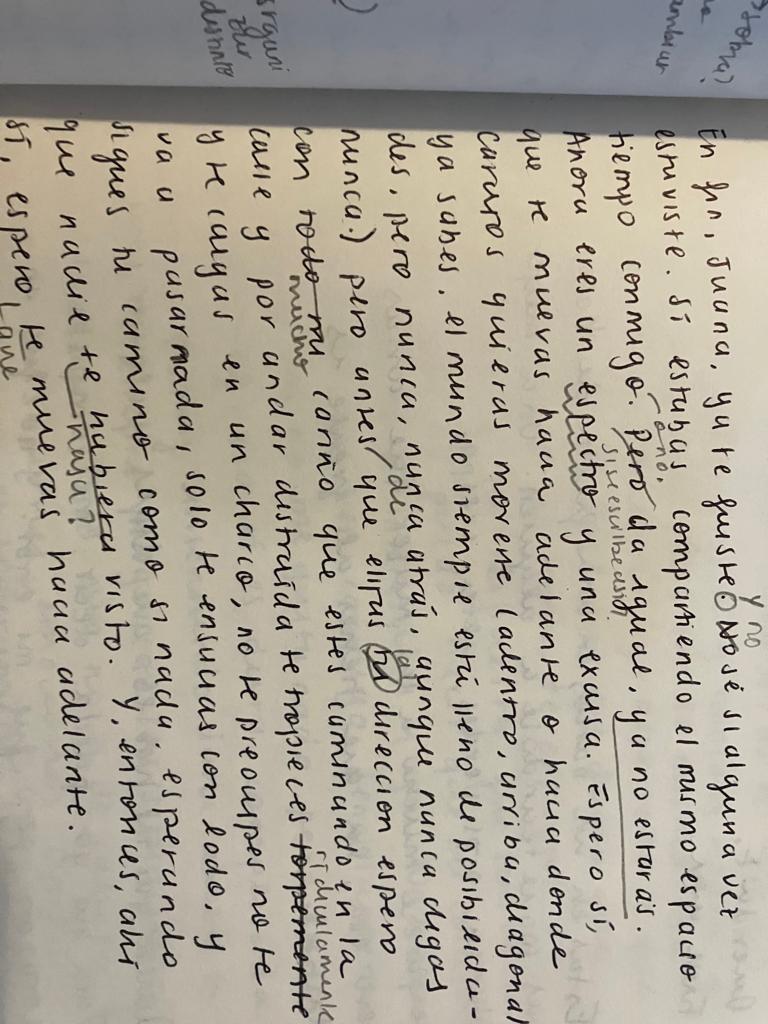 En fin, Juana, ya te fuiste. Y no sé si alguna vez
estuviste. Sí estabas compartiendo el mismo espacio
o no,
tiempo conmigo. Pero da igual, ya no estarás.
Ahora eres un espectro y una excusa. Espero sí,
que te muevas hacia adelante o hacia donde
carajos quieras moverte (adentro, arriba, diagonal
ya sabes, el mundo siempre está lleno de posibilida-
des, pero nunca, nunca atrás, aunque nunca digas
de la
nunca.) pero antes que elijas tu direccion espero
con todo mi cariño que estes caminando en la
mucho
ridiculamente
calle y por andar distraída te tropieces torpemente
y te caigas en un charco, no te preocupes no te
va a pasar nada, solo te ensucias con lodo, y
sigues tu camino como si nada, esperando
que nadie te hubiera visto. Y, entonces, ahí
haya?
sí, espero te muevas hacia adelante.
que